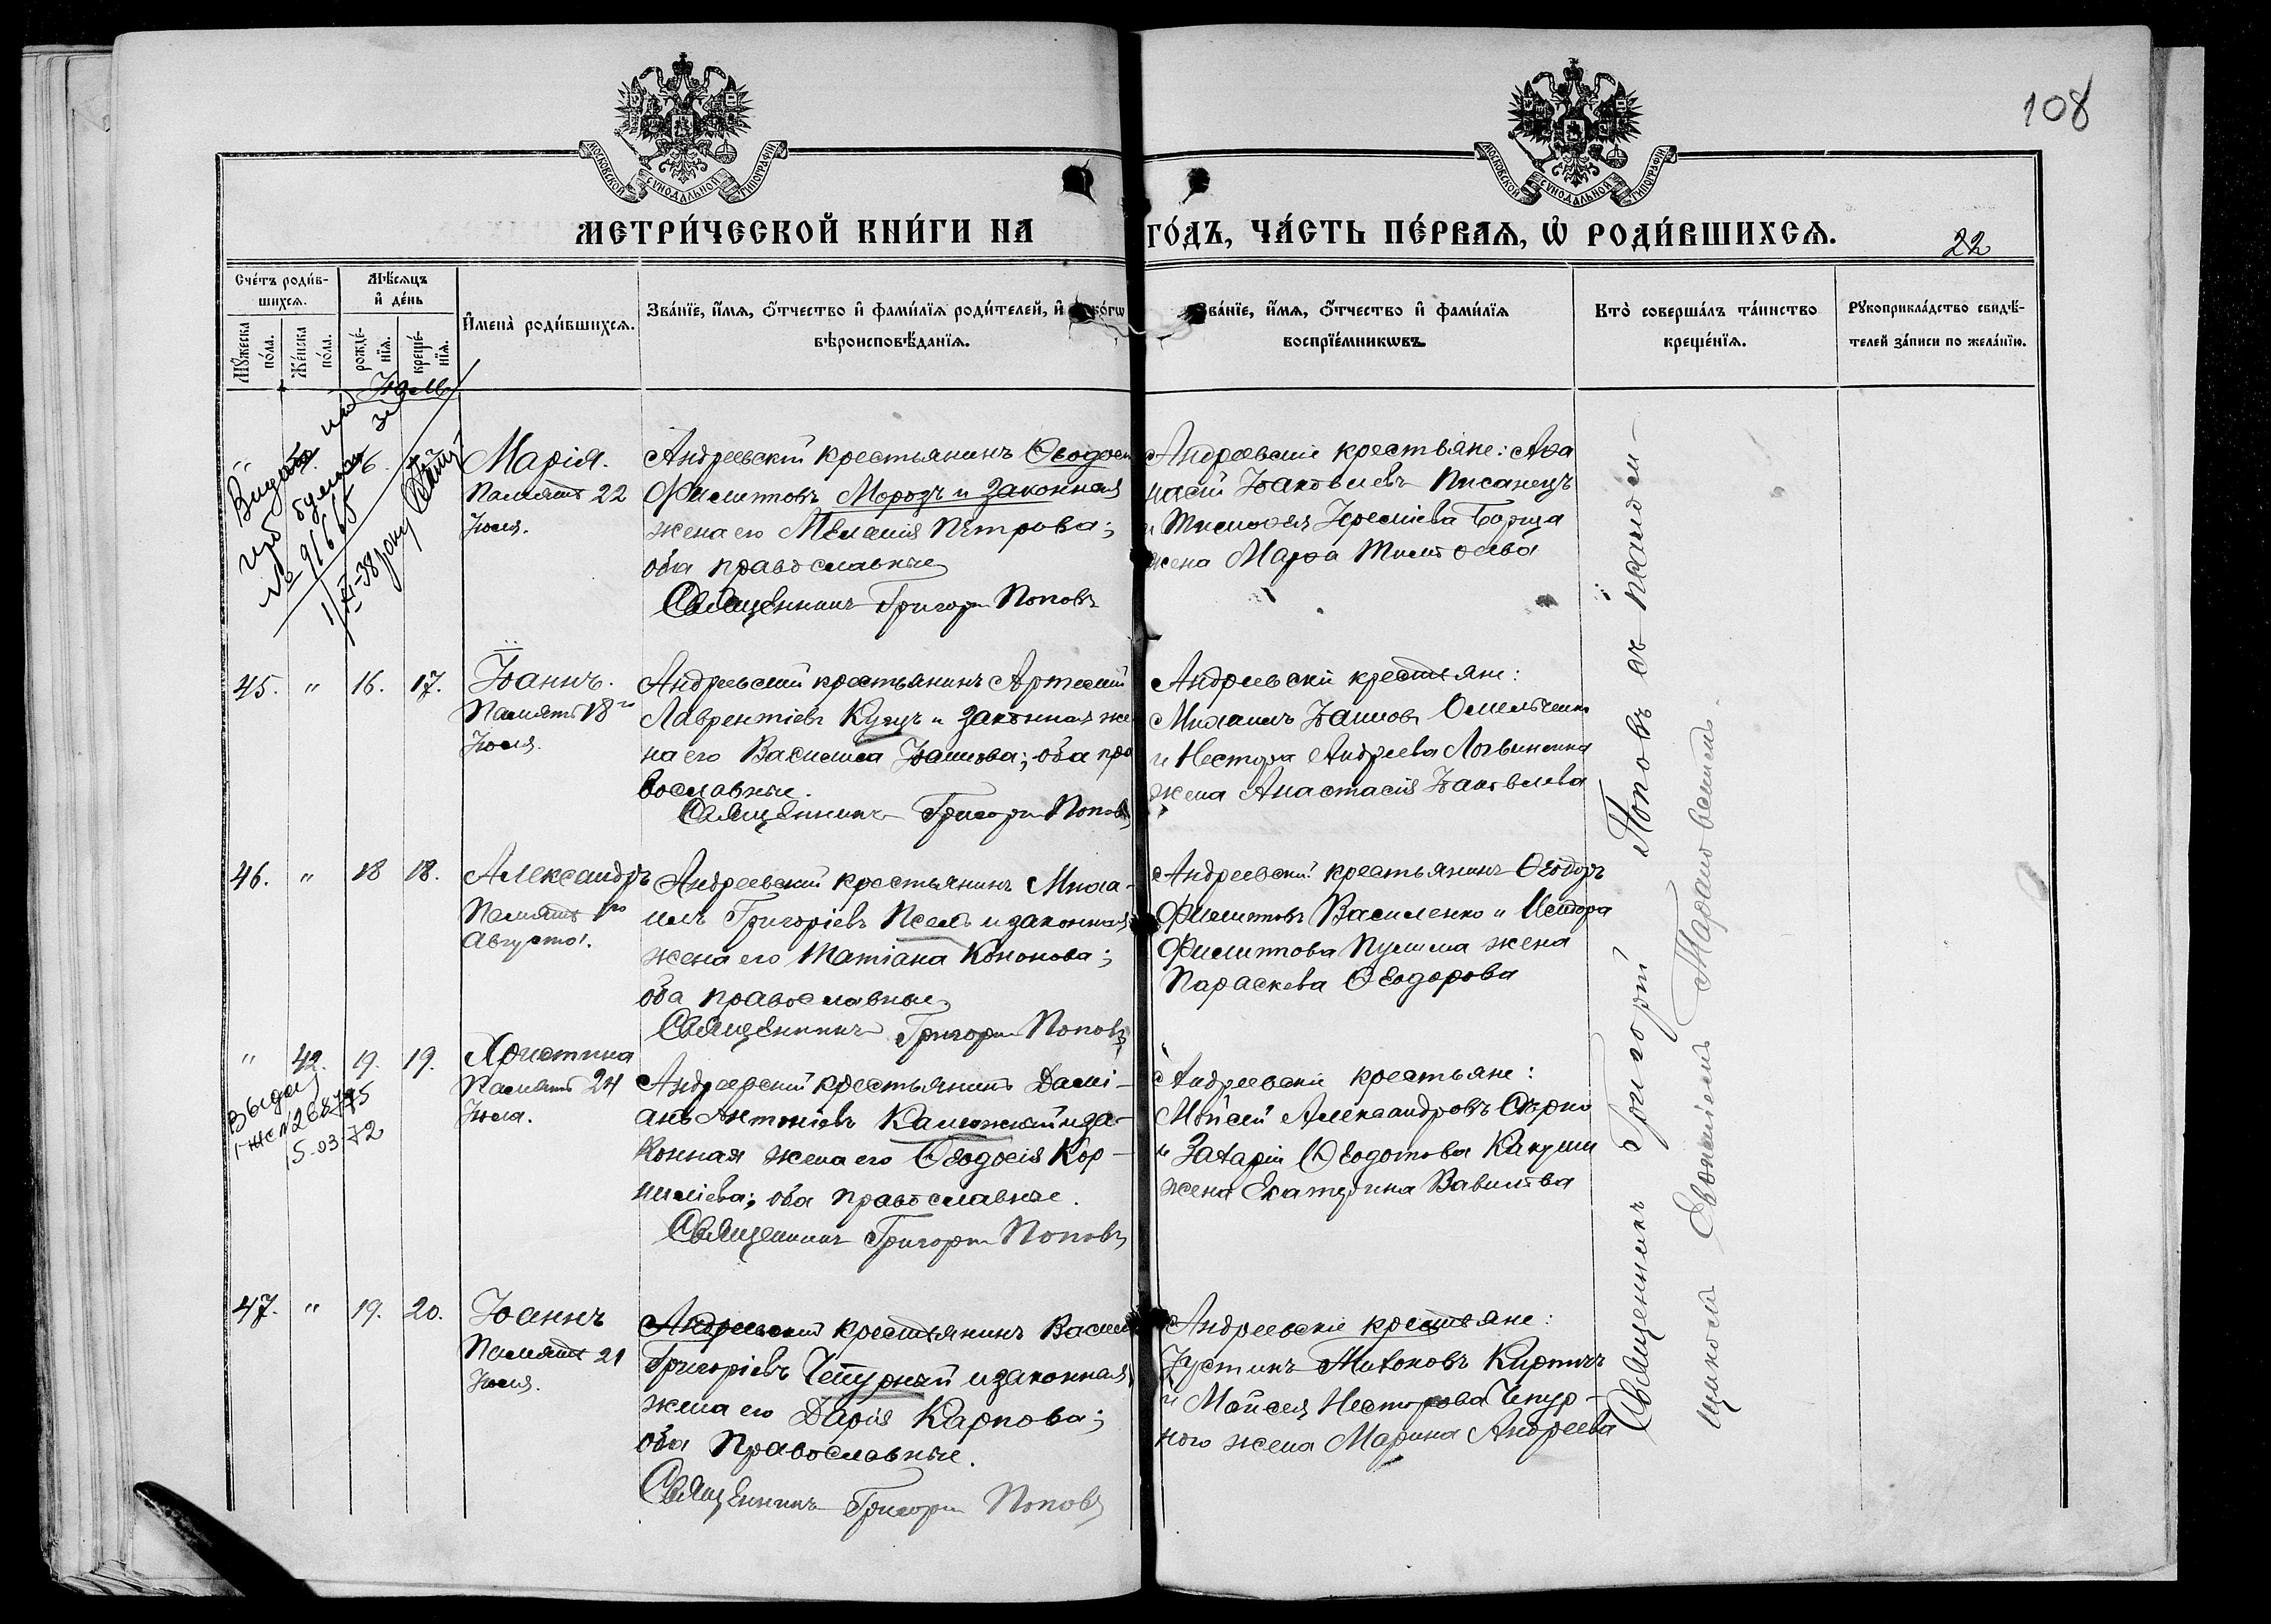 108
МОСКОВСКОЙ СѴНОДАЛЬНОЙ ТИПОГРАФІИ
МОСКОВСКОЙ СѴНОДАЛЬНОЙ ТИПОГРАФІИ
МЕТРИ́ЧЕСКОЙ КНИ́ГИ НА ГО́ДЪ, ЧА́СТЬ ПЕ́РВАЯ, Ѡ҆ РОДИ́ВШИХСЯ.
22
Сче́тъ роди́в-
шихся.
Мѣ́сяцъ
и҆ де́нь
Мꙋ́жеска
по́ла.
Же́нска
по́ла.
рожде́-
нїя.
креще́-
нїя.
И҆мена̀ роди́вшихся.
Зва́нїе, и҆́мя, ѻ҆́тчество и҆ фами́лїя роди́телей, и҆ ко́гѡ
вѣроисповѣ́данїя.
Зва́нїе, и҆́мя, ѻ҆́тчество и҆ фами́лїя
воспрїе́мникѡвъ.
Кто̀ соверша́лъ та́инство
креще́нїя.
Рꙋкоприкла́дство свидѣ́-
телей за́писи по жела́нїю.
Юль
№ 91665
Марія.
Память 22
Юля.
Андреевскій крестьянинъ Ѳеодосій
Филипповъ Морозъ и законная
жена его Меланія Петрова;
оба православные
Священникъ Григорій Поповъ
Андреевскіе крестьяне: Аѳа
насій Іаковлевъ Писанецъ
и Тимоѳея Іереміева Борща
жена Марѳа
45. " 16. 17.
Іоаннъ.
Память 18го
Юля.
Андреевскій крестьянинъ Артемій
Лаврентіевъ Куцъ и законная же
на его Василиса Іоаннова; оба пра
вославные.
Священникъ Григорій Поповъ
Андреевскіе крестьяне:
Михаилъ Іоанновъ Омельченко
и Нестора Андреева Логвиненка
жена Анастасія Іаковлева
46. " 18 18.
Александръ
Память 1го
Августа.
Андреевскій крестьянинъ Миха-
илъ Григоріевъ Псёлъ и законная
жена его Татіана Кононова;
оба православные
Священникъ Григорій Поповъ
Андреевскій крестьянинъ Ѳеодоръ
Филипповъ Василенко и
Филиппова жена
Параскева Ѳеодорова
" 42. 19. 19.
Выдан
№ 268775
15-03-72
Христина
Память 24
Юля.
Андреевскій крестьянинъ Дамі-
анъ Антоніевъ Каможскій и за-
конная жена его Ѳеодосія Кор-
ниліева; оба православные.
Священникъ Григорій Поповъ
Андреевскіе крестьяне:
Мойсей Александровъ Сѣрко
и Захарія Ѳеодотова Какуши
жена Екатерина Вавилова
47. " 19. 20.
Іоаннъ
Память 21
Юля.
Андреевскій крестьянинъ Василій
Григоріевъ Чепурный и законная
жена его Дарія Карпова;
оба Православные.
Священникъ Григорій Поповъ
Андреевскіе крестьяне:
Іустинъ Тихоновъ Кирпичъ
и Мойсея Несторова Чепур-
ного жена Марина Андреева
Священникъ Григорій Поповъ съ псаломъ-
щикомъ Евѳиміемъ